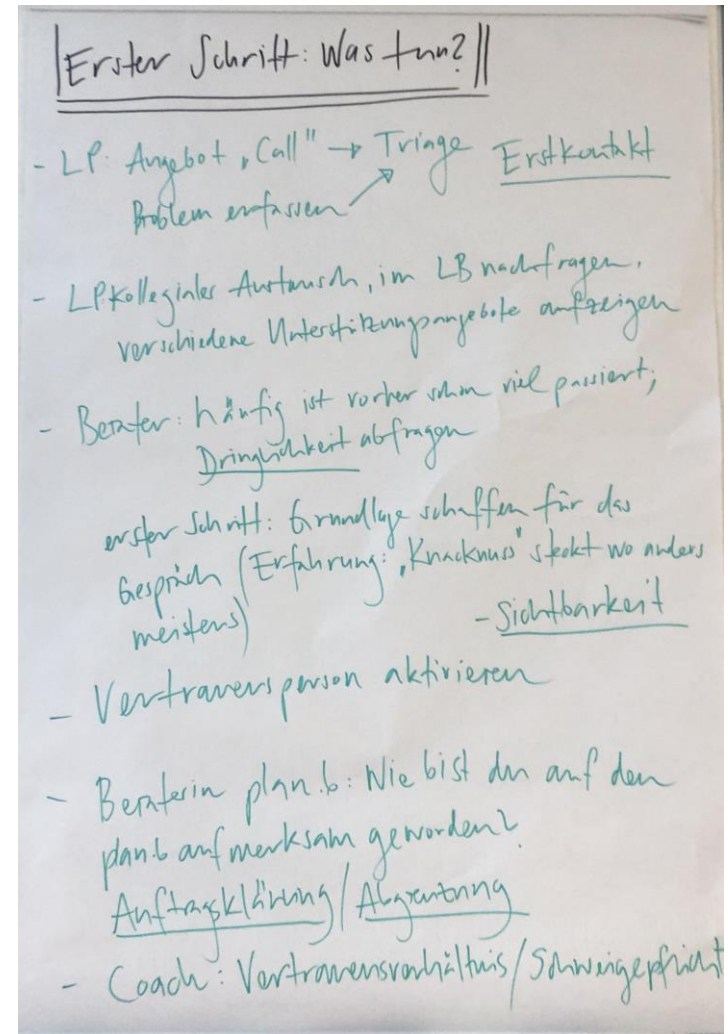 Erster Schritt: Was tun?
- LP: Angebot „Call" → Triage Erstkontakt
Problem erfassen
- LP Kollegialer Austausch, im LB nachfragen,
verschiedene Unterstützungsangebote aufzeigen
- Berater: häufig ist vorher schon viel passiert;
Dringlichkeit abfragen
erster Schritt: Grundlage schaffen für das
Gespräch (Erfahrung: „Knacknuss" steckt wo anders
meistens)
- Sichtbarkeit
- Vertrauensperson aktivieren
- Beraterin plan.b: Wie bist du auf den
plan.b aufmerksam geworden?
Auftragsklärung / Abgrenzung
- Coach: Vertrauensverhältnis / Schweigepflicht